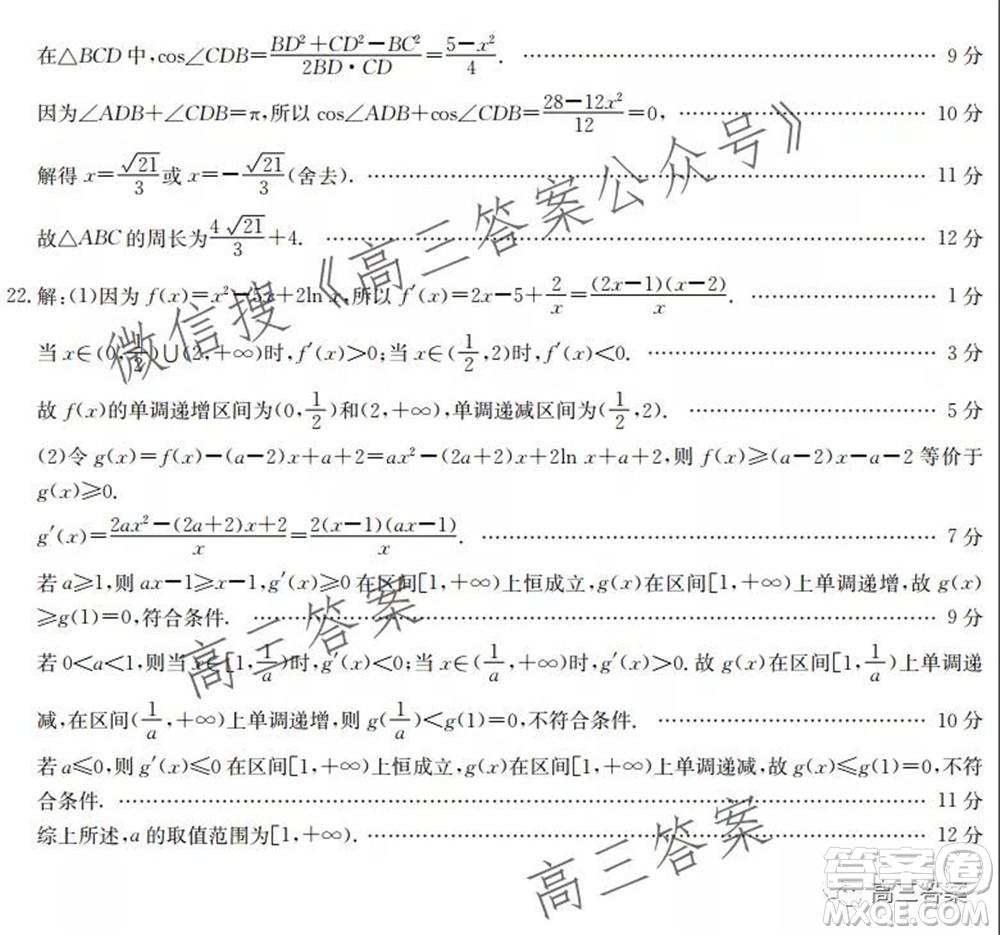 在△BCD中,cos∠CDB=\frac{BD²+CD²-BC²}{2BD·CD}=\frac{5-x²}{4}. ………… 9分
因为∠ADB+∠CDB=π,所以cos∠ADB+cos∠CDB=\frac{28-12x²}{12}=0, ………… 10分
解得x=\frac{\sqrt{21}}{3}或x=-\frac{\sqrt{21}}{3}(舍去). ………… 11分
故△ABC的周长为\frac{4\sqrt{21}}{3}+4. ………… 12分
22.解:(1)因为f(x)=x²-5x+2ln x,所以f′(x)=2x-5+\frac{2}{x}=\frac{(2x-1)(x-2)}{x}. ………… 1分
当x∈(0,\frac{1}{2})∪(2,+∞)时,f′(x)>0;当x∈(\frac{1}{2},2)时,f′(x)<0. ………… 3分
故f(x)的单调递增区间为(0,\frac{1}{2})和(2,+∞),单调递减区间为(\frac{1}{2},2). ………… 5分
(2)令g(x)=f(x)-(a-2)x+a+2=ax²-(2a+2)x+2ln x+a+2,则f(x)≥(a-2)x-a-2等价于
g(x)≥0.
g′(x)=\frac{2ax²-(2a+2)x+2}{x}=\frac{2(x-1)(ax-1)}{x}. ………… 7分
若a≥1,则ax-1≥x-1,g′(x)≥0在区间[1,+∞)上恒成立,g(x)在区间[1,+∞)上单调递增,故g(x)
≥g(1)=0,符合条件. ………… 9分
若0<a<1,则当x∈[1,\frac{1}{a})时,g′(x)<0;当x∈(\frac{1}{a},+∞)时,g′(x)>0.故g(x)在区间[1,\frac{1}{a})上单调递
减,在区间(\frac{1}{a},+∞)上单调递增,则g(\frac{1}{a})<g(1)=0,不符合条件. ………… 10分
若a≤0,则g′(x)≤0在区间[1,+∞)上恒成立,g(x)在区间[1,+∞)上单调递减,故g(x)≤g(1)=0,不符
合条件. ………… 11分
综上所述,a的取值范围为[1,+∞). ………… 12分
微信搜《高三答案公众号》
高三答案
高三答案
高三答案
答案圈
MXQE.COM